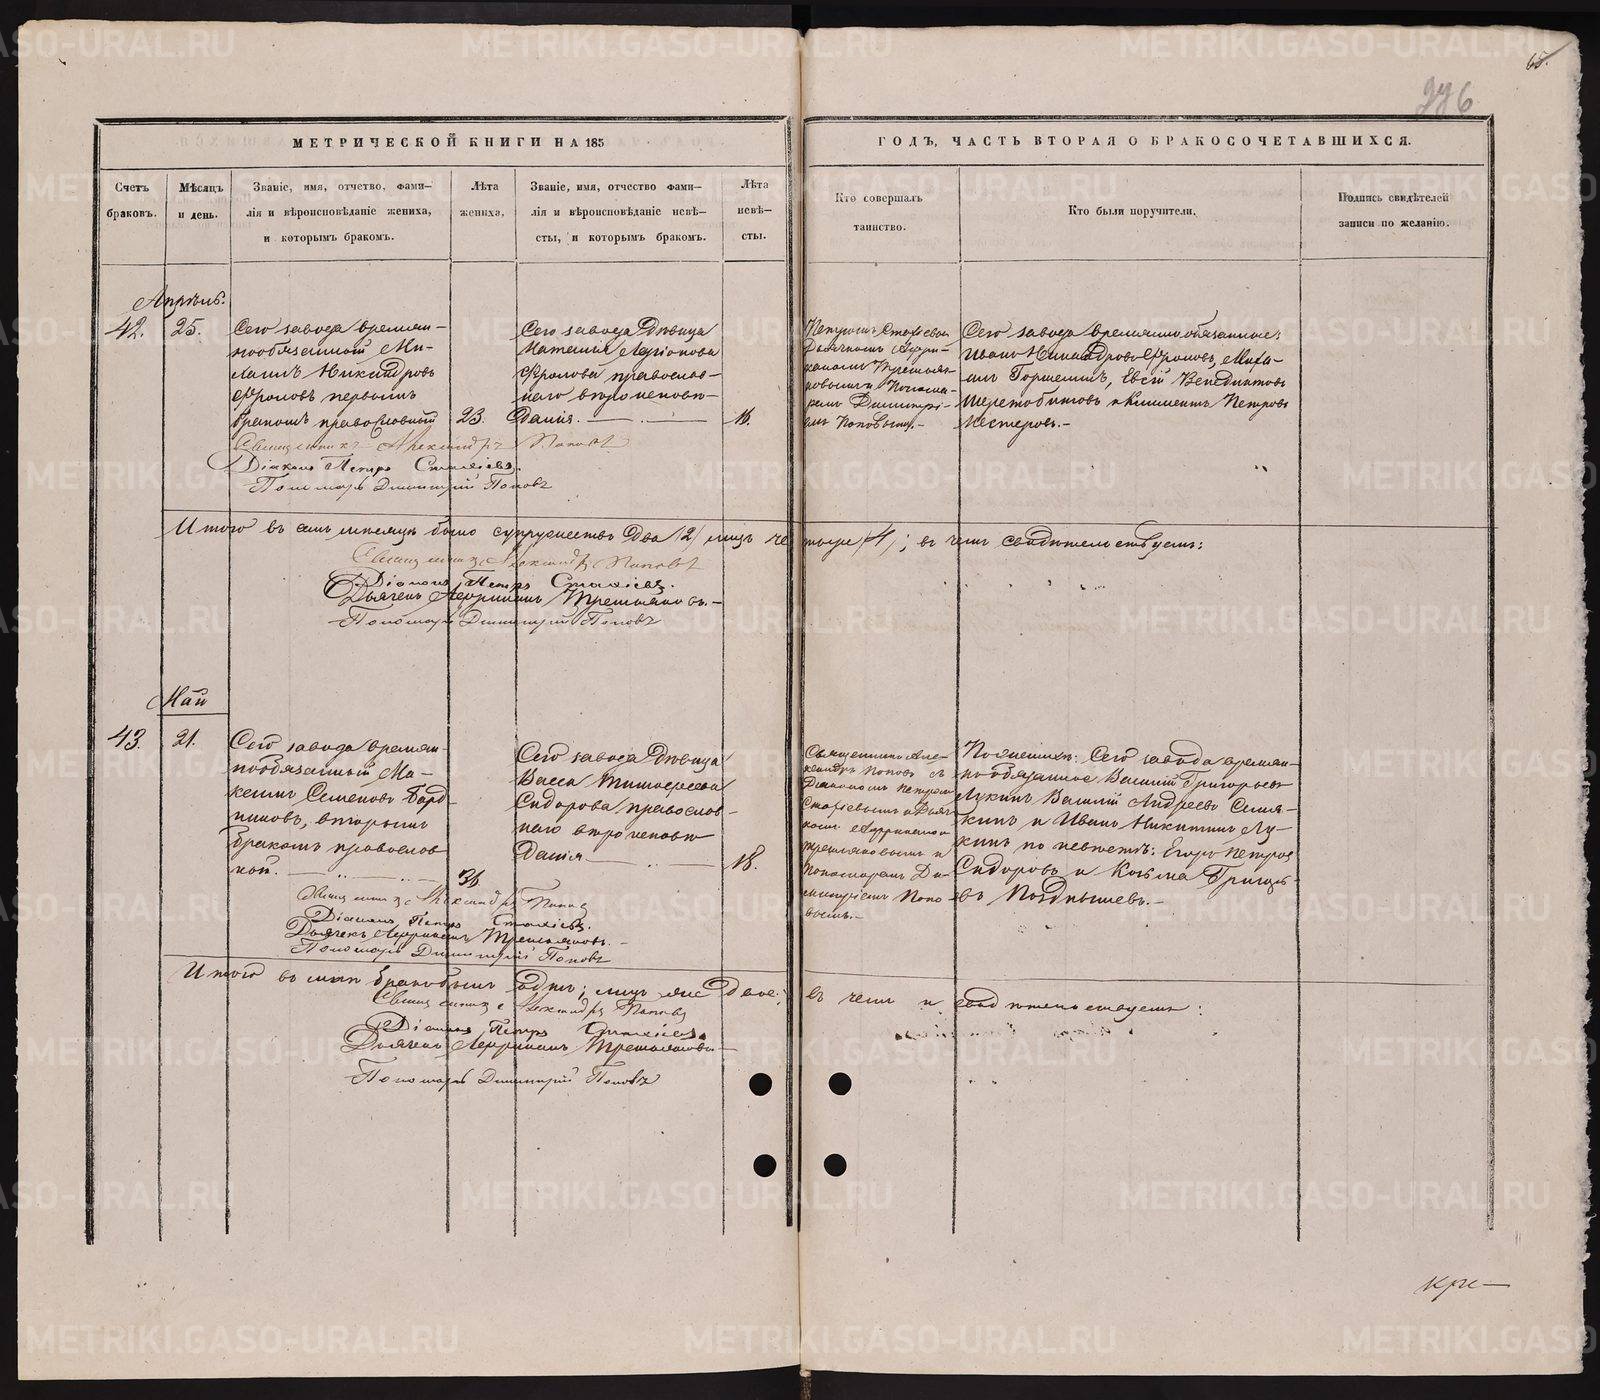 65.
226
МЕТРИЧЕСКОЙ КНИГИ НА 185
ГОДЪ, ЧАСТЬ ВТОРАЯ О БРАКОСОЧЕТАВШИХСЯ.
Счетъ браковъ.
Мѣсяцъ и день.
Званіе, имя, отчетво, фами–
лія и вѣроисповѣданіе жениха,
и которымъ бракомъ.
Лѣта жениха,
Званіе, имя, отчество фами–
лія и вѣроисповѣданіе невѣ–
сты, и которымъ бракомъ.
Лѣта невѣ–
сты.
Кто совершалъ таинство.
Кто были поручители.
Подпись свидѣтелей
записи по желанію.
Апрѣль.
42.
25.
Сего завода времян-
нообязанный Ми-
Никандровъ
Фроловъ первымъ
бракомъ православный
23.
Сего завода Дѣвица
Наталья Ларіонова
Фролова православ-
наго вѣроисповѣ-
данія.
18.
Петромъ Стахіевымъ
Дьячкомъ Афри-
каномъ Третья-
ковымъ и Понома-
ремъ Димитрі-
емъ Поповымъ.-
Сего завода времянно обязанные:
Иванъ Никандровъ Фроловъ, Миха-
илъ Горшенинъ, Евсѣй Венедиктовъ
Шерстобитовъ и Климентъ Петровъ
Нестеровъ.-
Священникъ Александръ Поповъ
Діаконъ Петръ Стахіевъ.
Пономарь Димитрій Поповъ
Итого въ семъ мѣсяцѣ было супружествъ два /2/ лицъ четыре /4/; въ чемъ свидѣтельствуемъ:
Священникъ Александръ Поповъ
Діаконъ Петръ Стахіевъ.
Дьячекъ Африканъ Третьяковъ.-
Пономарь Димитрій Поповъ
Май
43.
21.
Сего завода времян-
нообязанный Ма-
Семеновъ Бард-
никовъ, вторымъ
бракомъ православ-
ной.
36
Сего завода Дѣвица
Васса Тимофеева
Сидорова, православ-
наго вѣроисповѣ-
данія
18.
Священникъ Але-
ксандръ Поповъ съ
Діакономъ Петромъ
Стахіевымъ и Дьяч-
комъ Африканомъ
Третьяковымъ и
Пономаремъ Ди-
митріемъ Попо-
вымъ.-
По женихѣ: Сего завода времян-
нообязанные Василій Григорьевъ
Лукинъ Василій Андреевъ
и Иванъ Никитинъ Лу-
кинъ по невѣстѣ: Егоръ Петровъ
Сидоровъ и Козьма Григорь-
евъ Позднышевъ.-
Священникъ Александръ Поповъ
Діаконъ Петръ Стахіевъ.
Дьячекъ Африканъ Третьяковъ.-
Пономарь Димитрій Поповъ
Итого въ маѣ бракъ былъ одинъ; лицъ же двое; въ чемъ и свидѣтельствуемъ:
Священникъ Александръ Поповъ
Діаконъ Петръ Стахіевъ.
Дьячекъ Африканъ Третьяковъ
Пономарь Димитрій Поповъ
METRIKI.GASO-URAL.RU